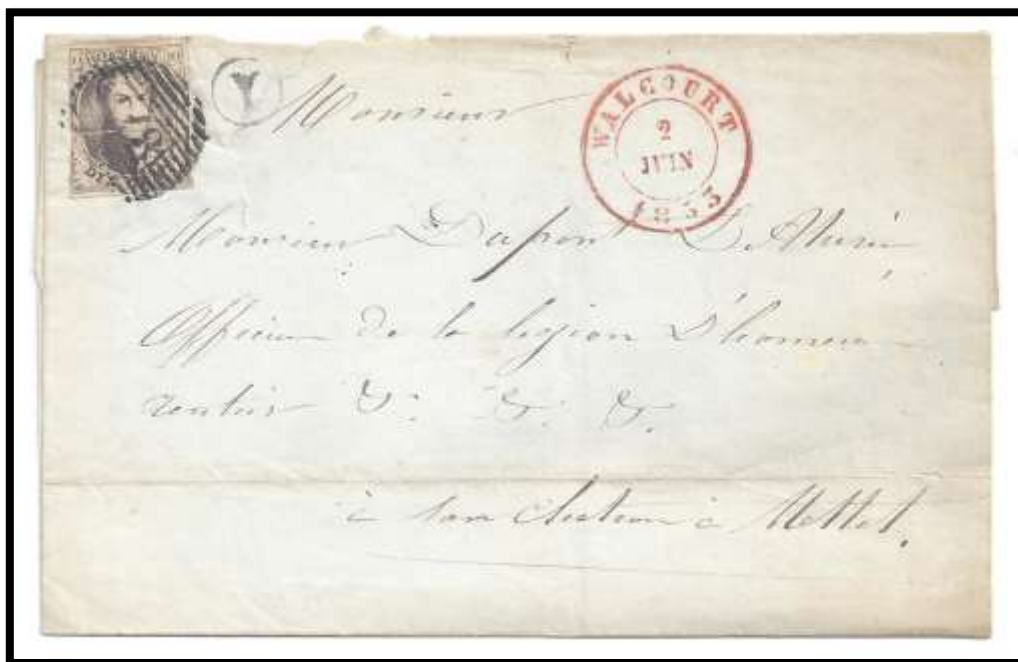 Y
WALCOURT
2
JUIN
1853
Monsieur
Monsieur Dupont
Officier de la legion D'honneur
rentier &. &. &.
à son chateau à Mettet.